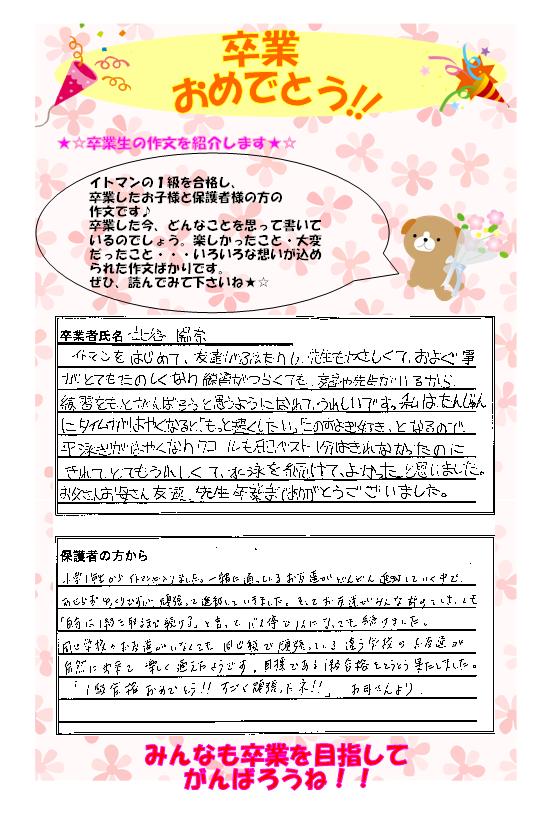 卒業
おめでとう!!
★☆卒業生の作文を紹介します★☆
イトマンの１級を合格し、
卒業したお子様と保護者様の方の
作文です♪
卒業した今、どんなことを思って書いて
いるのでしょう。楽しかったこと・大変
だったこと・・・いろいろな想いが込め
られた作文ばかりです。
ぜひ、読んでみて下さいね★☆
卒業者氏名
イトマンをはじめて、友達がふえたりし、先生もやさしくて、およぐ事
がとてもたのしくなり練習がつらくても、友達や先生がいるから、
練習をもっとがんばろうと思うようになれて、うれしいです。私はたんじゅん
にタイムがはやくなると「もっと速くしたい。」
平泳ぎがはやくなり ベスト 1分はきれなかったのに
きれて、とてもうれしくて、水泳を続けて、よかったと感じました。
お父さんお母さん友達、先生卒業までありがとうございました。
保護者の方から
小学1年生からイトマンに入りました。一緒に通っているお友達がどんどん進級していく中で、
ゆっくりですが頑張って進級していきました。そしてお友達がみんなやめてしまっても
「自分は1級を取るまで続ける」と言って 1人になっても続けました。
同じ学校のお友達がいなくても同じ級で頑張っている違う学校のお友達が
自然に出来て楽しく通えたようです。目標である1級合格をとうとう果たしました。
「1級合格おめでとう!! すごく頑張ったネ!!」 お母さんより。
みんなも卒業を目指して
がんばろうね！！